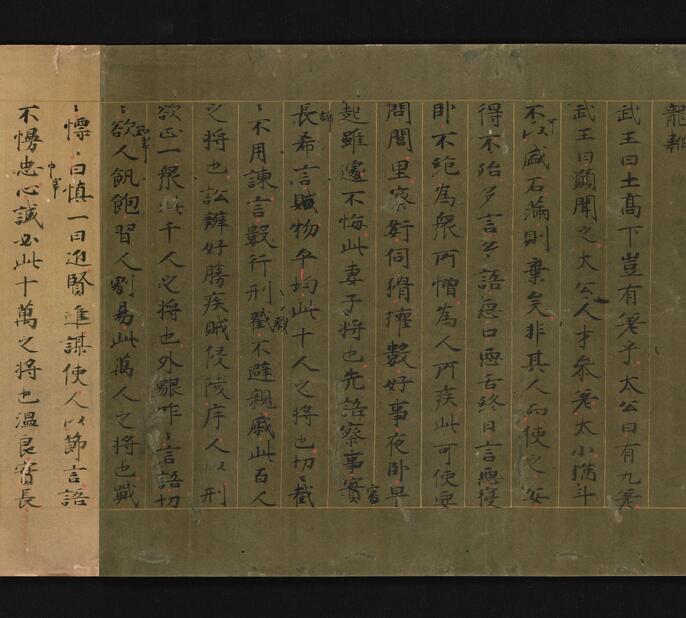 龍韜
武王曰士髙下豈有差乎太公曰有九差
武王曰願聞之太公人才參差太小猶斗
不以盛石滿則棄矣非其人而使之安
得不殆多言多語惡口惡舌終日言惡寢
卧不絶為衆所憎為人所疾此可使要
問閭里察姧伺猾權數好事夜卧早
起雖遽不悔此妻子將也先語察事實
長希言賦物平均此十人之將也切〻截
〻不用諫言數行刑戮不避親戚此百人
之將也訟辨好勝疾賊侵陵斥人以刑
欲正一衆此千人之將也外貌咋〻言語切
〻欲人飢飽習人劇易此萬人之將也戰
〻慄〻日慎一日近賢進謀使人以節言語
不慢忠心誠必此十萬之將也温良實長